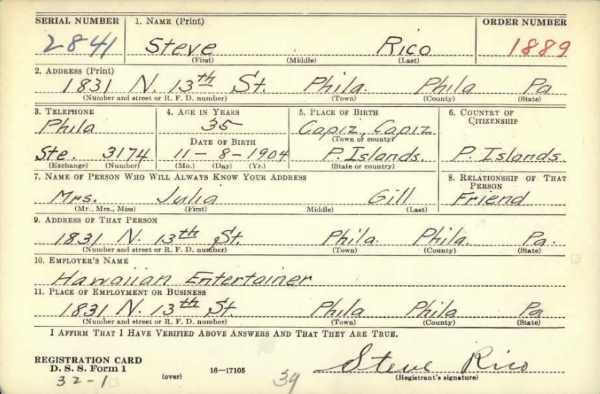 SERIAL NUMBER 1. NAME (Print) ORDER NUMBER
2841 Steve Rico 1889
(First) (Middle) (Last)
2. ADDRESS (Print)
1831 N. 13th St. Phila. Phila Pa
(Number and street or R. F. D. number) (Town) (County) (State)
3. TELEPHONE 4. AGE IN YEARS 5. PLACE OF BIRTH 6. COUNTRY OF CITIZENSHIP
Phila 35 Capiz, Capiz
DATE OF BIRTH (Town or county)
Ste. 3174 11-8-1904 P. Islands. P. Islands.
(Exchange) (Number) (Mo.) (Day) (Yr.) (State or country)
7. NAME OF PERSON WHO WILL ALWAYS KNOW YOUR ADDRESS 8. RELATIONSHIP OF THAT PERSON
Mrs. Julia Gill Friend
(Mr., Mrs., Miss) (First) Middle) (Last)
9. ADDRESS OF THAT PERSON
1831 N. 13th St. Phila. Phila. Pa.
(Number and street or R. F. D. number) (Town) (County) (State)
10. EMPLOYER'S NAME
Hawaiian Entertainer
11. PLACE OF EMPLOYMENT OR BUSINESS
1831 N. 13th St. Phila Phila Pa
(Number and street or R. F. D. number) (Town) (County) (State)
I AFFIRM THAT I HAVE VERIFIED ABOVE ANSWERS AND THAT THEY ARE TRUE.
REGISTRATION CARD
D. S. S. Form 1 16—17105 Steve Rico
32-1 (over) 39 (Registrant's signature)